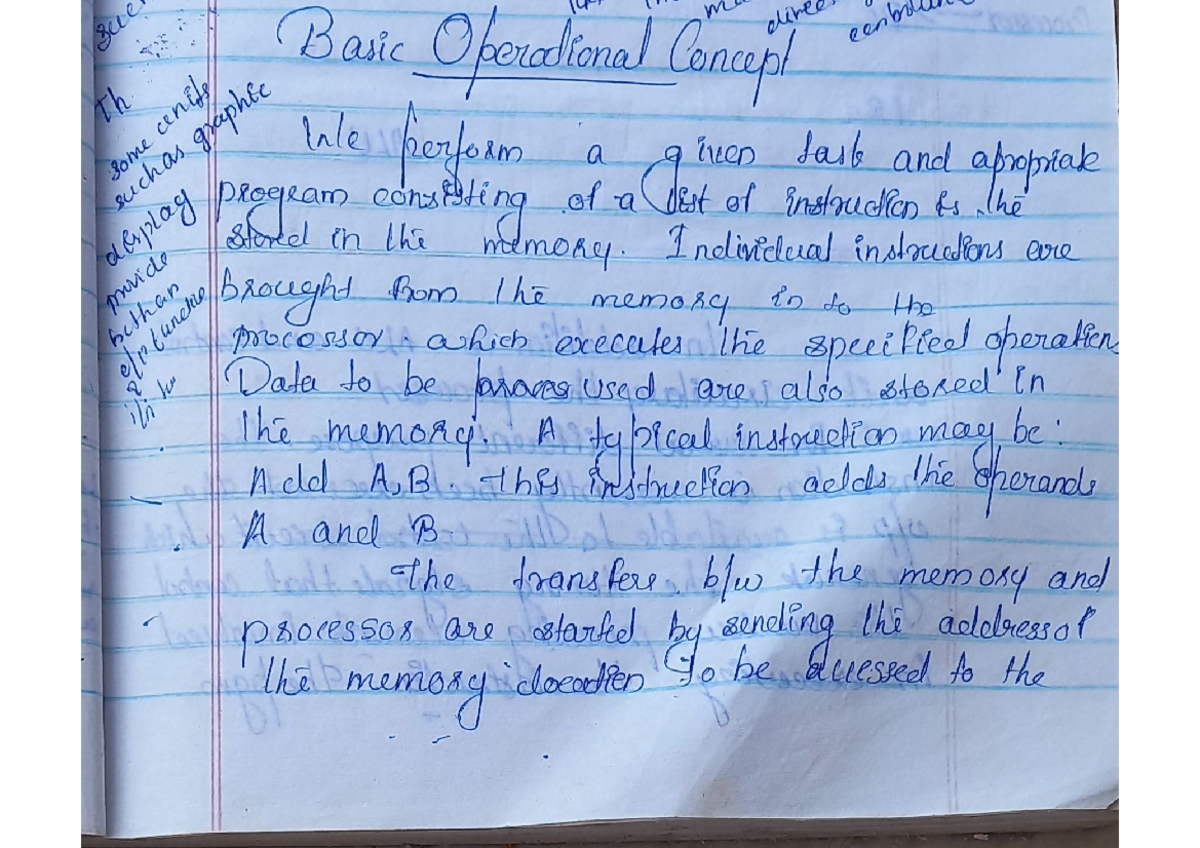 Basic Operational Concept
We perform a given task and apropriate
program consisting of a list of instruction is the
stored in the memory. Individual instructions are
brought from the memory in to the
processor which executes the specified operation
Data to be used are also stored in
the memory. A typical instruction may be:
Add A,B. This instruction adds the operands
A and B.
The transfers b/w the memory and
processor are started by sending the address of
the memory location to be accessed to the
Th
some units
such as graphic
display
provide
both an